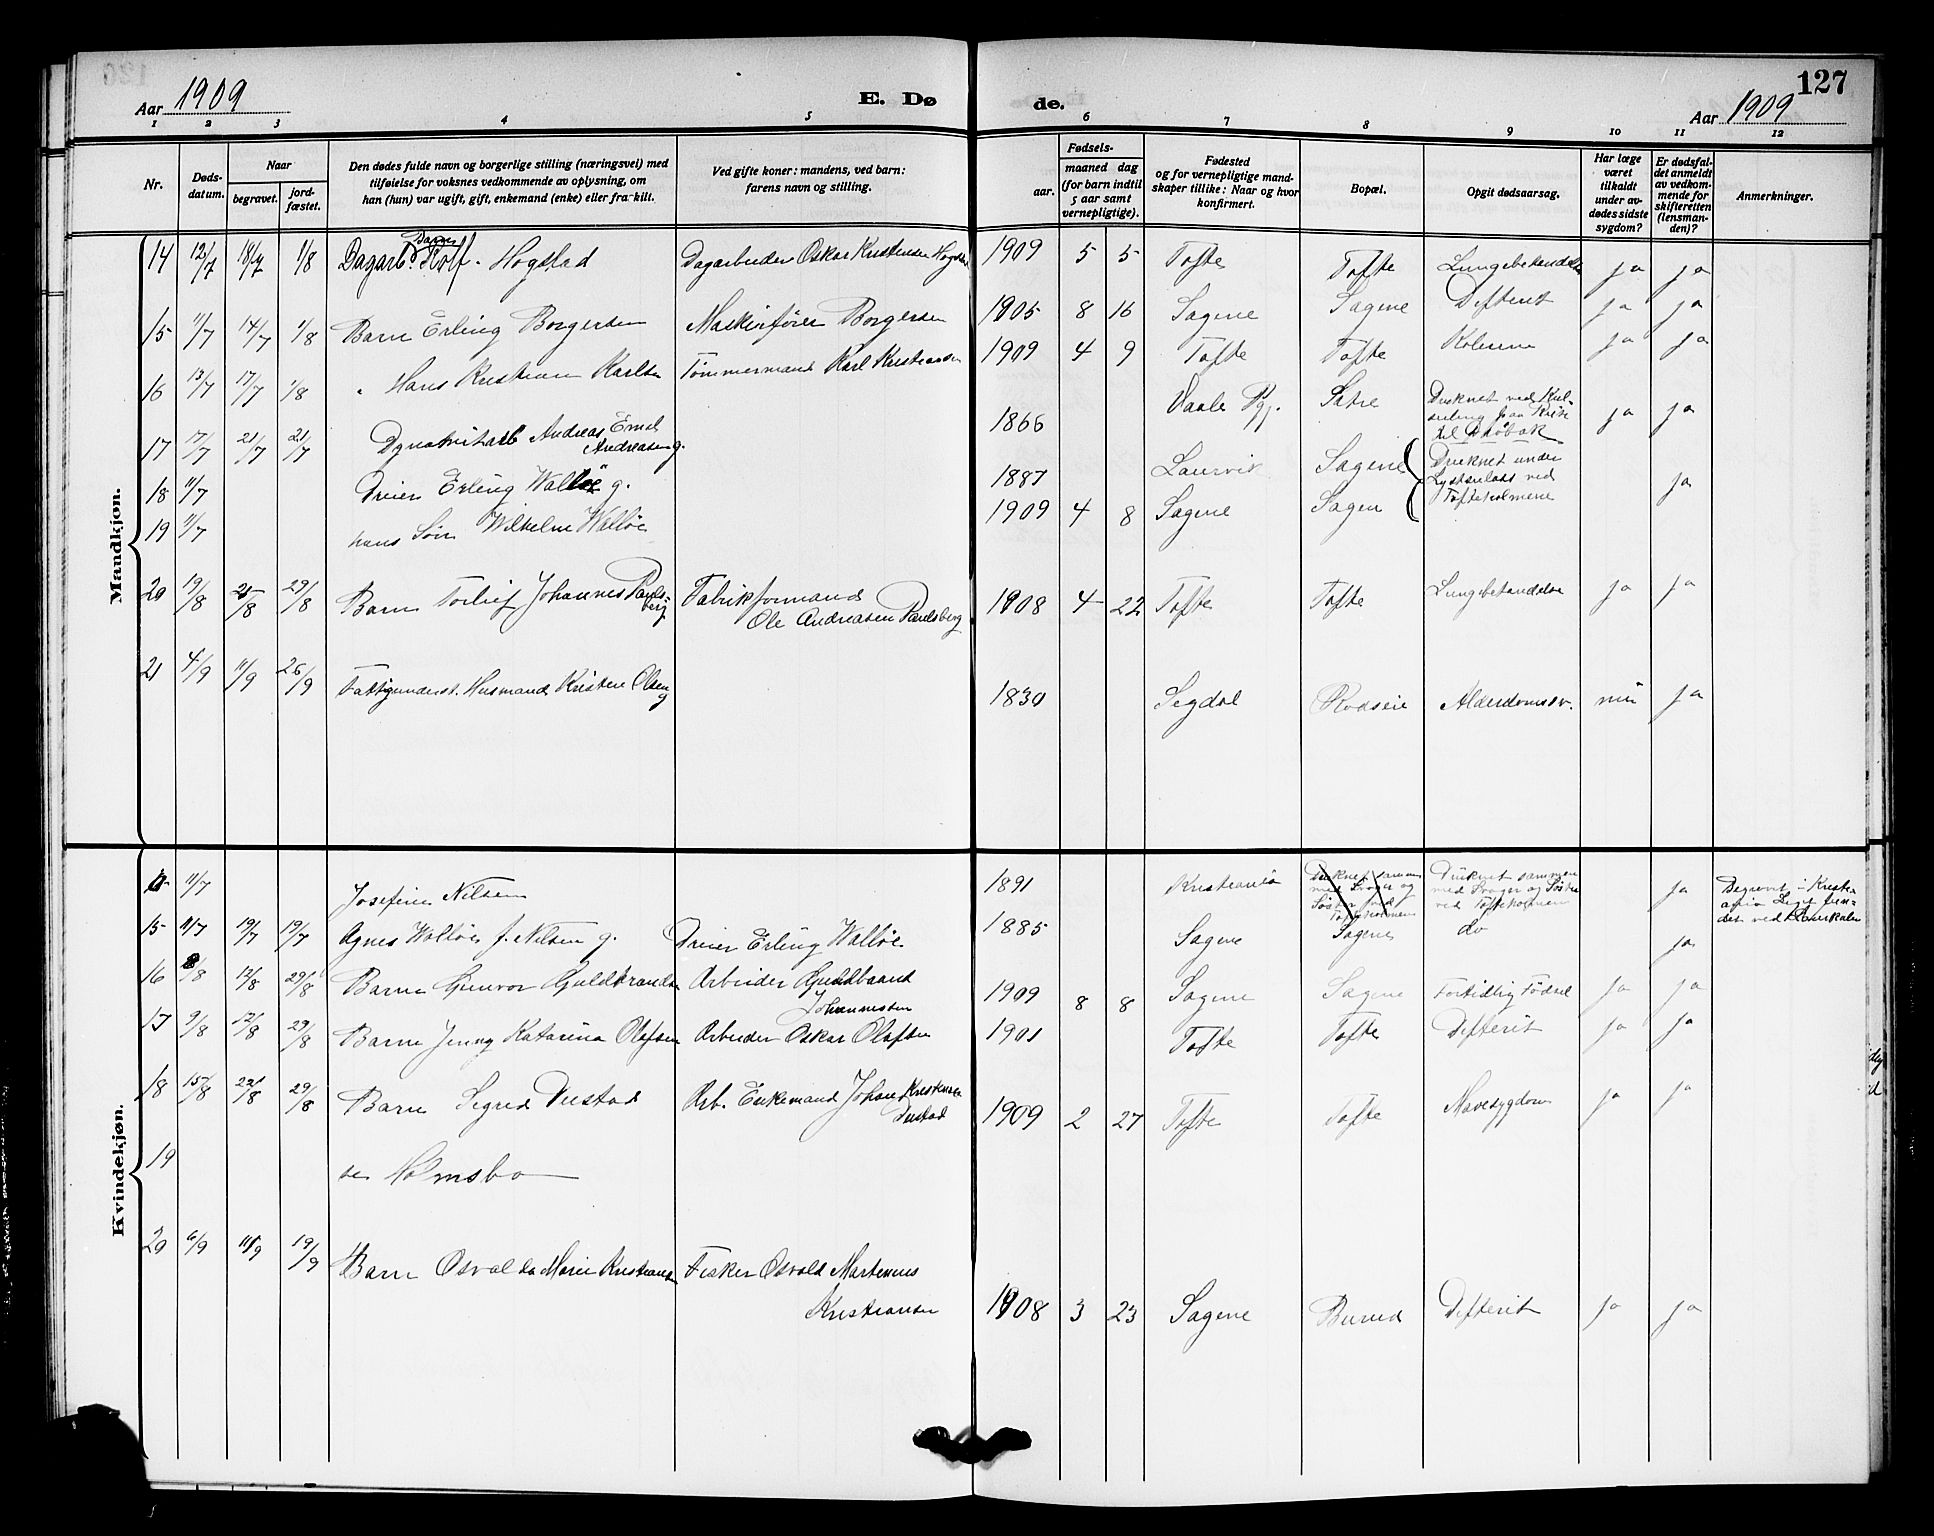 127
Aar 1909
E. Dø
de.
Aar 1909
1 2 3 4 5 6 7 8 9 10 11 12
Nr.
Døds-
datum.
Naar
begravet.
jord-
fæstet.
Den dødes fulde navn og borgerlige stilling (næringsvei) med
tilføielse for voksnes vedkommende av oplysning, om
han (hun) var ugift, gift, enkemand (enke) eller fraskilt.
Ved gifte koner: mandens, ved barn:
farens navn og stilling.
Fødsels-
aar.
maaned dag
(for barn indtil
5 aar samt
vernepligtige).
Fødested
og for vernepligtige mand-
skaper tillike: Naar og hvor
konfirmert.
Bopæl.
Opgit dødsaarsag.
Har læge
været
tilkaldt
under av-
dødes sidste
sygdom?
Er dødsfal-
det anmeldt
av vedkom-
mende for
skifteretten
(lensman-
den)?
Anmerkninger.
Mandkjøn.
14 12/7 18/7 1/8 Dagarb. Barn Rolf Hogstad Dagarbeider Oskar Kristensen Hogstad 1909 5 5 Tofte Tofte Lungebetændelse ja ja
15 11/7 14/7 1/8 Barn Erling Borgersen Maskinfører Borgersen 1905 8 16 Sagene Sagene Difterit ja ja
16 13/7 17/7 1/8 " Hans Kristian Karlsen Tømmermand Karl Kristiansen 1909 4 9 Tofte Tofte Kolerine ja ja
17 17/7 21/7 21/7 Dynamitarb Andreas Emil
Andreasen g. 1866 Vaale Pgj. Sætre Druknet ved Kul-
seiling fra
til Drøbak ja ja
18 11/7 Dreier Erling Walløe g. 1887 Laurvik Sagene Druknet under
Lystseilads ved
Tofteholmene ja
19 11/7 hans Søn Wilhelm Walløe 1909 4 8 Sagene Sagen
20 19/8 25/8 29/8 Barn Torleif Johannes Pauls-
berg Fabrikformand
Ole Andreasen Paulsberg 1908 4 22 Tofte Tofte Lungebetændelse ja ja
21 4/9 11/9 26/9 Fattigunderst. Husmand Kristen Olsen
g 1830 Sigdal Rødseie Alderdomssv. nei ja
Kvindekjøn.
11/7 Josefine Nilsen 1891 Kristiania Druknet sammen
med Svoger og
Søster ved
Tofteholmen Druknet sammen
med Svoger og Søster
ved Tofteholmen ja Begravet i Kristi-
ania Liget fun-
det ved
15 11/7 19/7 19/7 Agnes Walløe f. Nilsen g. Dreier Erling Walløe 1885 Sagene Sagene do ja
16 8/8 12/8 29/8 Barn Gunvor Guldbrandsen Arbeider Guldbrand
Johannesen 1909 8 8 Sagene Sagene Fortidlig Fødsel ja ja
17 9/8 12/8 29/8 Barn Jenny Katarina Olafsen Arbeider Oskar Olafsen 1901 Tofte Tofte Difterit ja ja
18 15/8 22/8 29/8 Barn Sigrid Dustad Arb. Enkemand Johan Kristensen
Dustad 1909 2 27 Tofte Tofte Mavesygdom ja ja
19 se Holmsbo
20 6/9 11/9 19/9 Barn Osvalda Marie Kristiansen Fisker Osvald Martinius
Kristiansen 1908 3 23 Sagene Burud Difterit ja ja